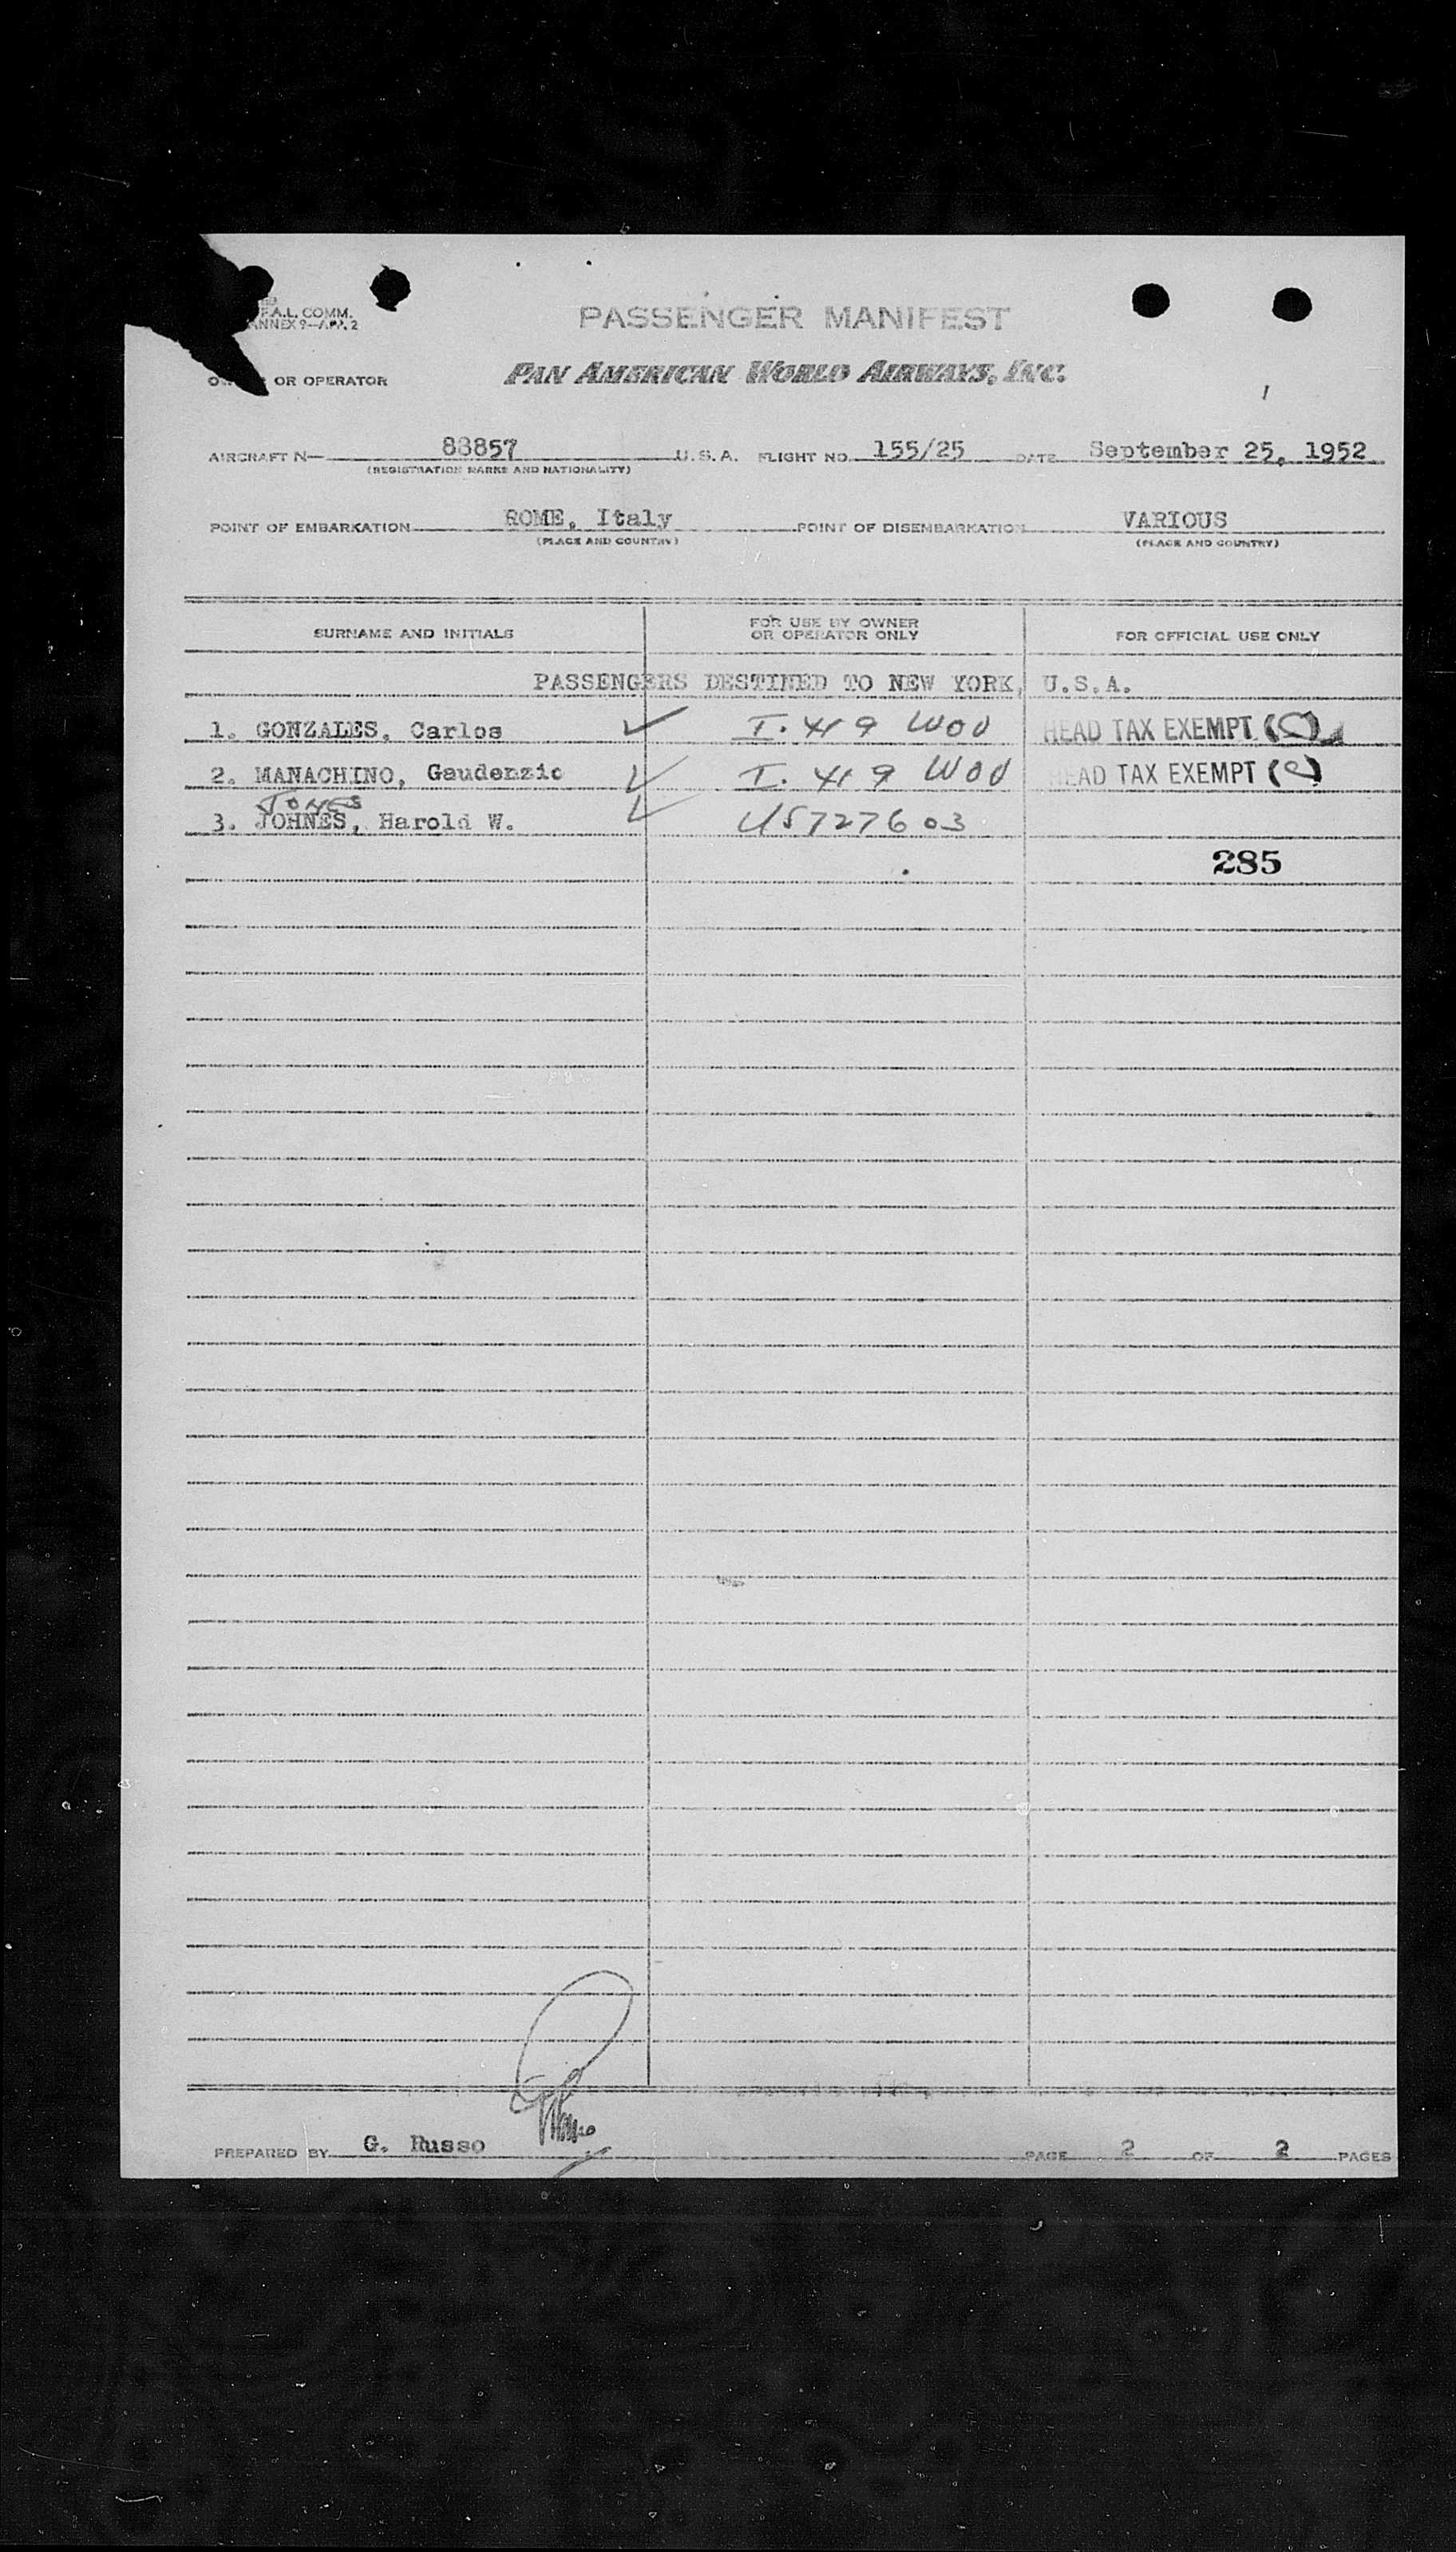 F.A.L. COMM.
ANNEX 9—APP. 2
PASSENGER MANIFEST
OR OPERATOR PAN AMERICAN WORLD AIRWAYS, INC.
AIRCRAFT N— 88857 U.S.A. FLIGHT NO. 155/25 DATE September 25, 1952
(REGISTRATION MARKS AND NATIONALITY)
POINT OF EMBARKATION ROME, Italy POINT OF DISEMBARKATION VARIOUS
(PLACE AND COUNTRY) (PLACE AND COUNTRY)
SURNAME AND INITIALS FOR USE BY OWNER OR OPERATOR ONLY FOR OFFICIAL USE ONLY
PASSENGERS DESTINED TO NEW YORK, U.S.A.
1. GONZALES, Carlos ✓ I. 419 WOV HEAD TAX EXEMPT (C)
2. MANACHINO, Gaudenzio ✓ I. 419 WOV HEAD TAX EXEMPT (C)
Jones
3. JOHNES, Harold W. ✓ US727603
285
PREPARED BY G. Russo PAGE 2 OF 2 PAGES